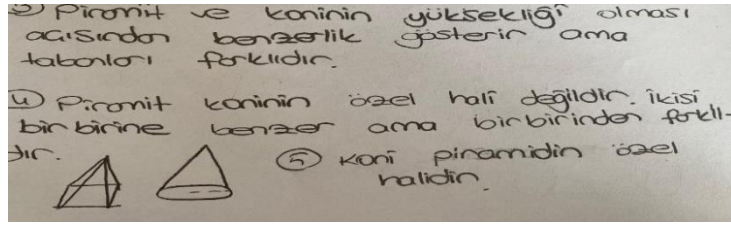 3) Piramit ve koninin yüksekliği olması
açısından benzerlik gösterir ama
tabanları farklıdır.
4) Piramit koninin özel hali değildir. İkisi
bir birine benzer ama birbirinden farklı-
dır.
5) Koni piramidin özel
halidir.